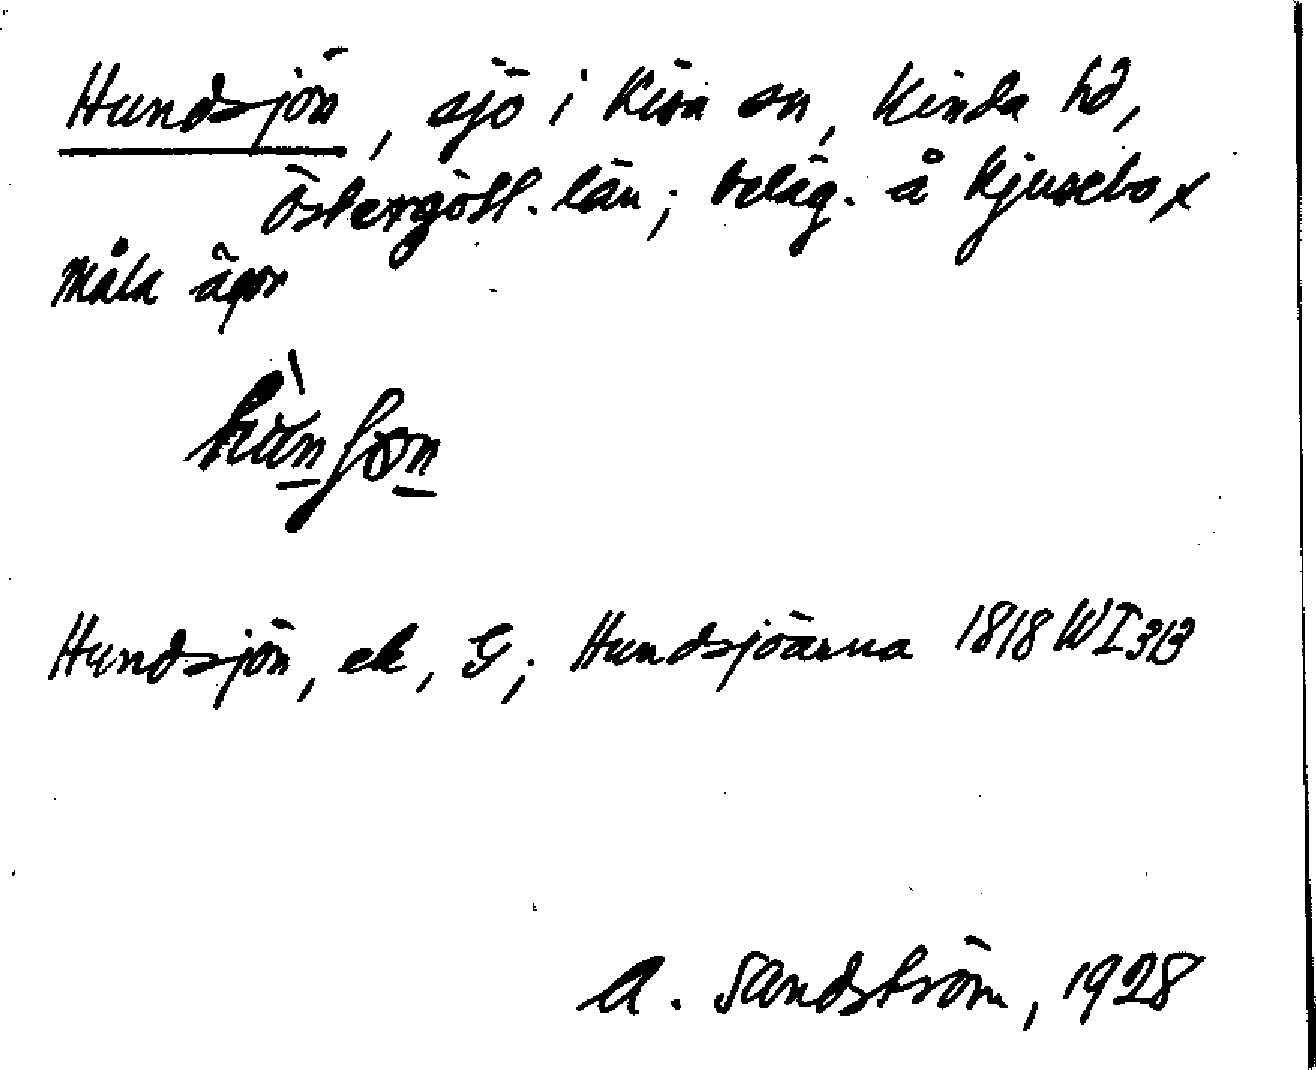 Hundsjön, sjö i Kisa sn, Kinda hd,
Östergötl. län; beläg. å Kjusebo x
Måla ägor
Hundsjön, ek, G; Hundsjöarna 1818 WI313
A. Sandström, 1928